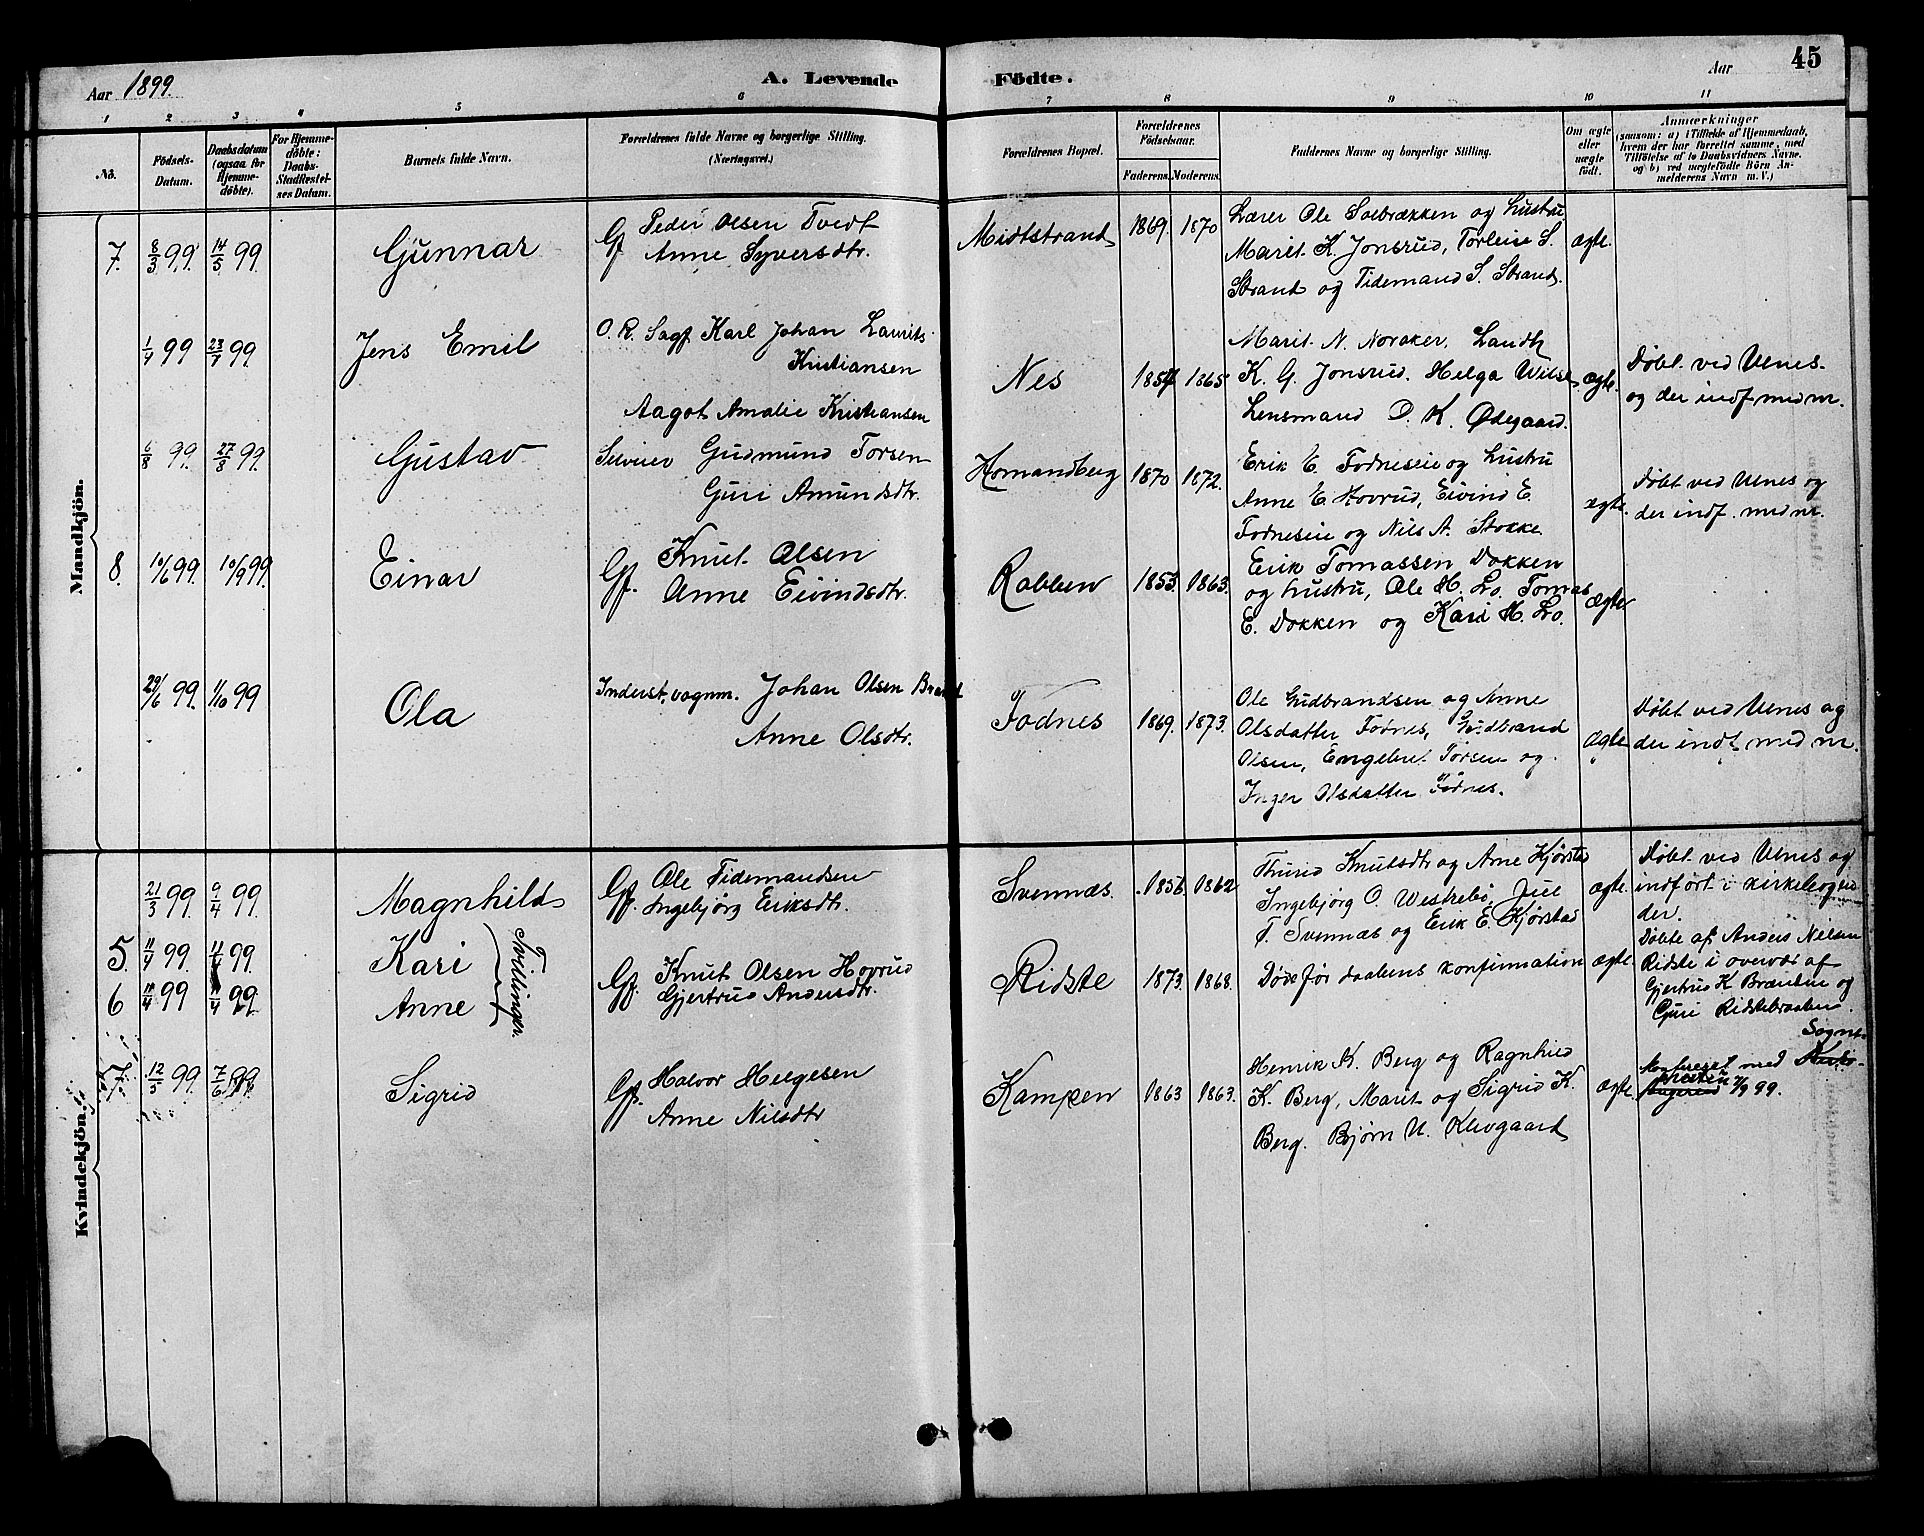 Aar 1899.
A. Levende Födte.
Aar
45
1 2 3 4 5 6 7 8 9 10 11
No.
Födsels-Datum.
Daabsdatum (ogsaa for Hjemme-döbte).
For Hjemme-döbte: Daabs-Stadfæstel-ses Datum.
Barnets fulde Navn.
Forældrenes fulde Navne og borgerlige Stilling. (Næringsvei.)
Forældrenes Bopæl.
Forældrenes Födselsaar.
Faderens. Moderens.
Faddernes Navne og borgerlige Stilling.
Om ægte eller uægte født.
Anmærkninger
(saasom: a) i Tilfælde af Hjemmedaab, hvem der har forrettet samme, med Tilföielse af to Daabsvidners Navne, og b) ved uægtefödte Börn Anmelderens Navn m. V.)
Mandkjön.
7. 8/3 99. 14/5 99. Gunnar
Gf Peder Olsen Tvedt
Anne Syversdtr.
Midtstrand 1869. 1870
Lærer Ole Solbrækken og hustru
Marit K. Jonsrud, Torleise S.
Strand og Tidemand S. Strand.
ægte.
1/4 99 23/7 99. Jens Emil
O. R. Sagf. Karl Johan Laurits
Kristiansen
Aagot Amalie Kristiansen
Nes 1854 1865
Marit N. Noraker, Landh
K. G. Jonsrud. Helga Wilse,
Lensmand O. K. Ødegaard.
ægte.
Døbt ved Ulnes
og der indf. med nr.
6/8 99. 27/8 99. Gustav
Selveier Gudmund Torsen
Guri Amundsdtr.
Homandberg 1870 1872.
Erik E. Fodneseie og hustru
Anne E. Hovrud, Eivind E.
Fodneseie og Nils A. Stokke
ægte.
Døbt ved Ulnes og
der indf. med nr.
8. 10/6 99. 10/9 99. Einar
Gf. Knut Olsen
Anne Eivindsdtr.
Rabben 1853. 1863.
Erik Tomassen Dokken
og hustru, Ole H. Lo. Tomas
E. Dokken og Kari H. Lo.
ægte
29/6 99. 1/10 99 Ola
Inderst, vognm. Johan Olsen
Anne Olsdtr.
Fodnes 1869. 1873.
Ole Gudbrandsen og Anne
Olsdatter Fodnes, Gudbrand
Olsen, Engebret Torsen og
Inger Olsdatter Fodnes.
Ægte
Døbt ved Ulnes og
der indf. med nr.
Kvindekjön.
21/3 99. 9/4 99. Magnhild
Gf. Ole Tidemandsen
Ingebjørg Eriksdtr.
Svennæs. 1856. 1862
Thurid Knutsdtr og Arne Kjørstad
Ingebjørg O. Westrebø, Juul
T. Svennæs og Erik E. Kjørstad
ægte.
Døbt ved Ulnes og
indført i kirkebogen
der.
5. 11/4 99. 11/4 99. Kari
6 11/4 99 11/4 99. Anne
Tvillinger.
Gf. Knut Olsen Hovrud
Gjertrud Andersdtr.
Ridste 1873. 1868.
Døde før daabens konfirmation
ægte
Døbte af Anders Nilsen
Ridste i overvær af
Gjertrud K Brænden og
Guri Ridstebraaten.
7. 12/5 99. 7/6 99. Sigrid
Gf. Halvor Helgesen
Anne Nilsdtr
Kampen 1863 1863.
Henrik K. Berg og Ragnhild
K. Berg, Marit og Sigrid K.
Berg. Bjørn U. Klevgaard
ægte.
Sogne-
med
presten 7/9 99.